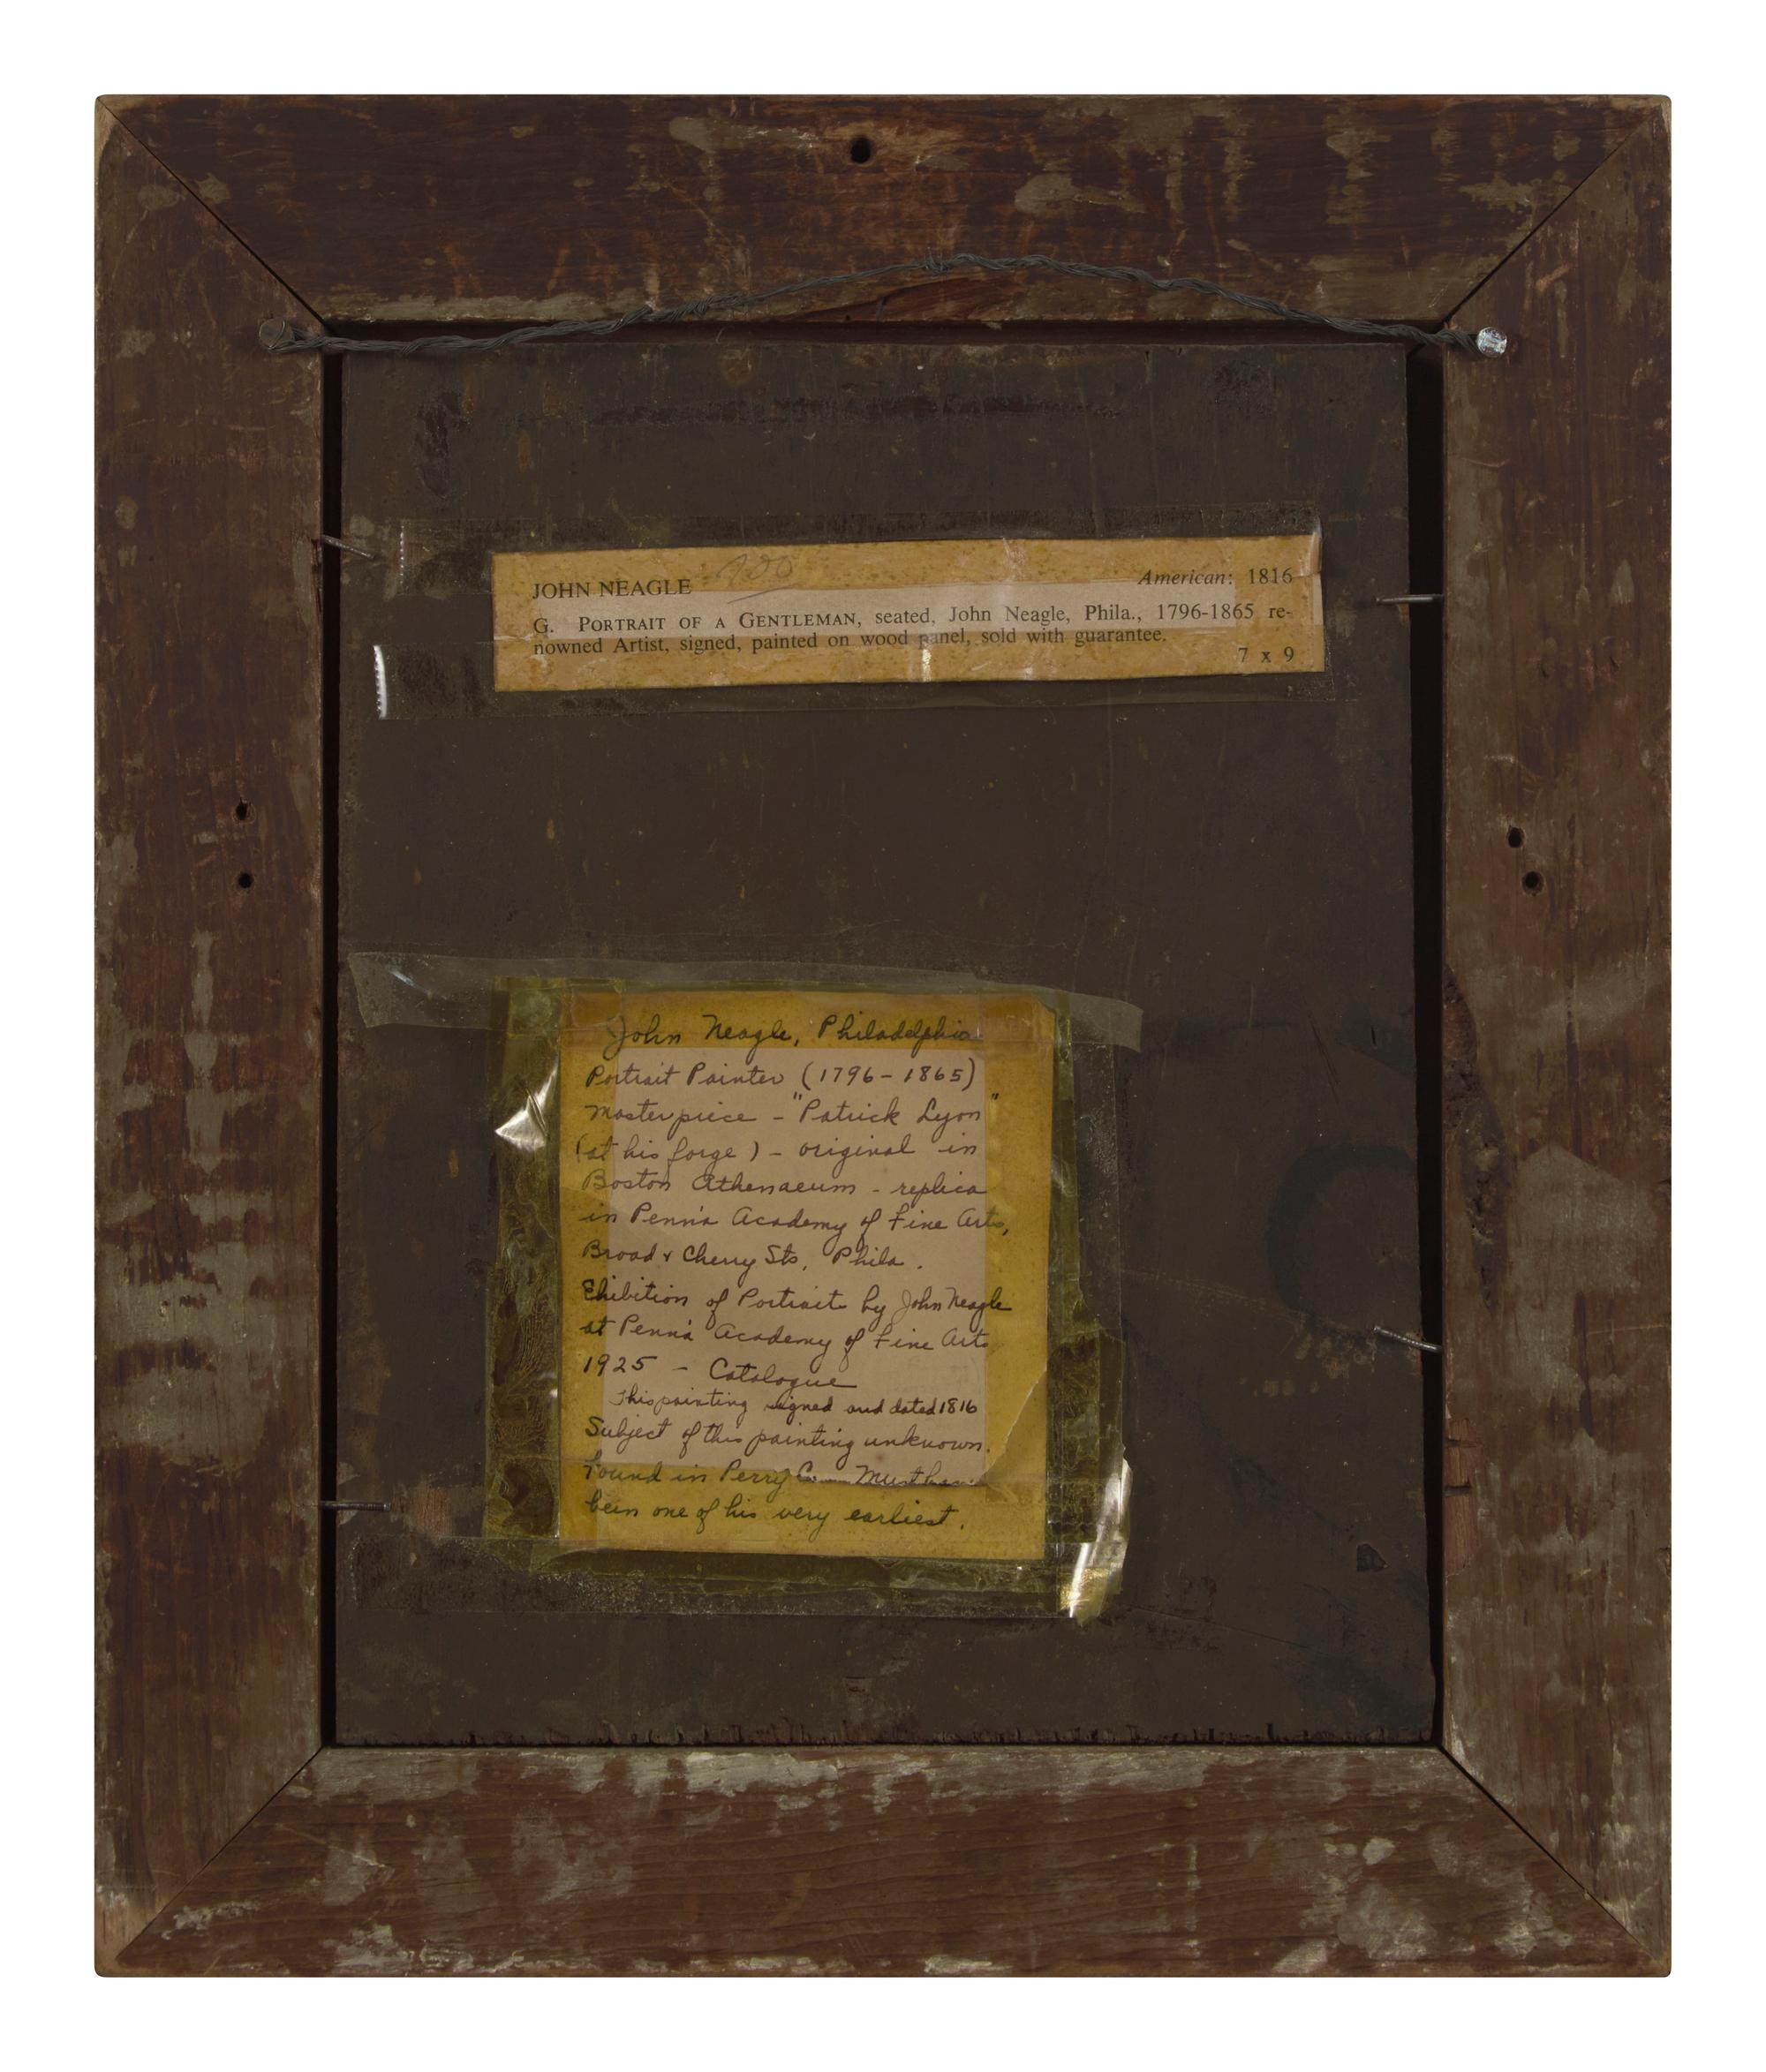 JOHN NEAGLE
American: 1816
G. PORTRAIT OF A GENTLEMAN, seated, John Neagle, Phila., 1796-1865 re-
nowned Artist, signed, painted on wood panel, sold with guarantee.
7 x 9
John Neagle, Philadelphia
Portrait Painter (1796 - 1865)
Masterpiece - "Patrick Lyon"
(at his forge) - original in
Boston Athenaeum - replica
in Penn'a Academy of Fine Arts,
Broad & Cherry Sts, Phila.
Ehibition of Portraits by John Neagle
at Penn'a Academy of Fine Arts
1925 - Catalogue
This painting signed and dated 1816
Subject of this painting unknown.
Found in Perry Must have
been one of his very earliest.